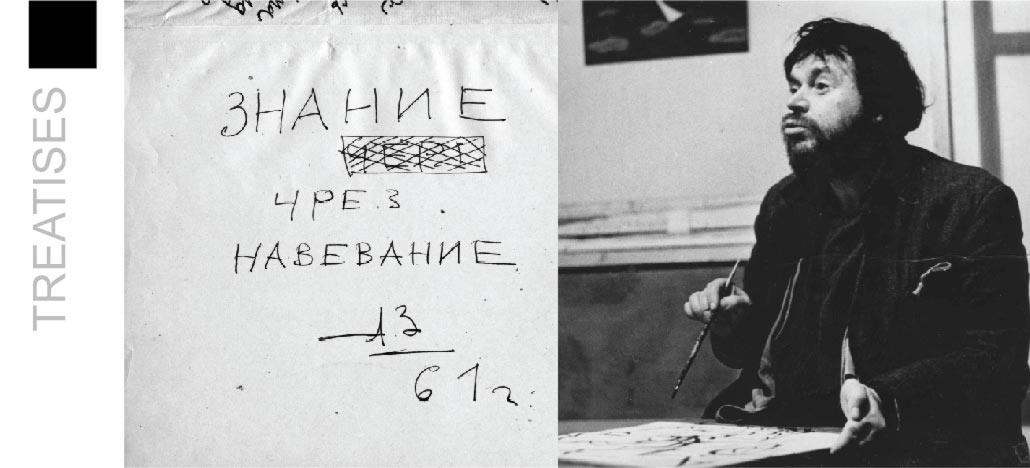 TREATISES
ЗНАНИЕ
ЧРЕЗ
НАВЕВАНИЕ
АЗ
61 г.